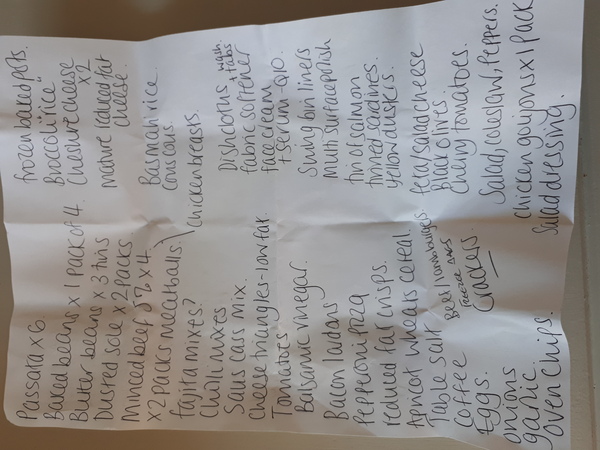 Passata x 6
Baked beans x 1 pack of 4.
Butter beans x 3 tins
Dusted sole x 2 packs
Minced beef
x 2 packs meatballs.
fajita mixes?
Chilli mixes
Saus cass mix.
Cheese triangles - low fat.
Tomatoes
Balsamic vinegar.
Bacon lardons
Pepperoni pizza
reduced fat crisps.
Apricot wheats cereal
Table salt
Coffee
Eggs.
onions
garlic
oven chips.
Beef / lamb burgers
freezer bags
Crackers.
frozen baked pots.
Broccoli rice
Cheshire cheese
x 2
mature reduced fat
cheese.
Basmati rice.
Couscous
Chicken breasts.
Dishcloths wash.
+ tabs
fabric softener
face cream
+ serum - Q10.
Swing bin liners
Multi surface polish
tin of salmon
tinned sardines.
yellow dusters.
feta/salad cheese
Black olives
Cherry tomatoes.
Salad, coleslaw, peppers.
Chicken goujons x 1 pack
Salad dressing.